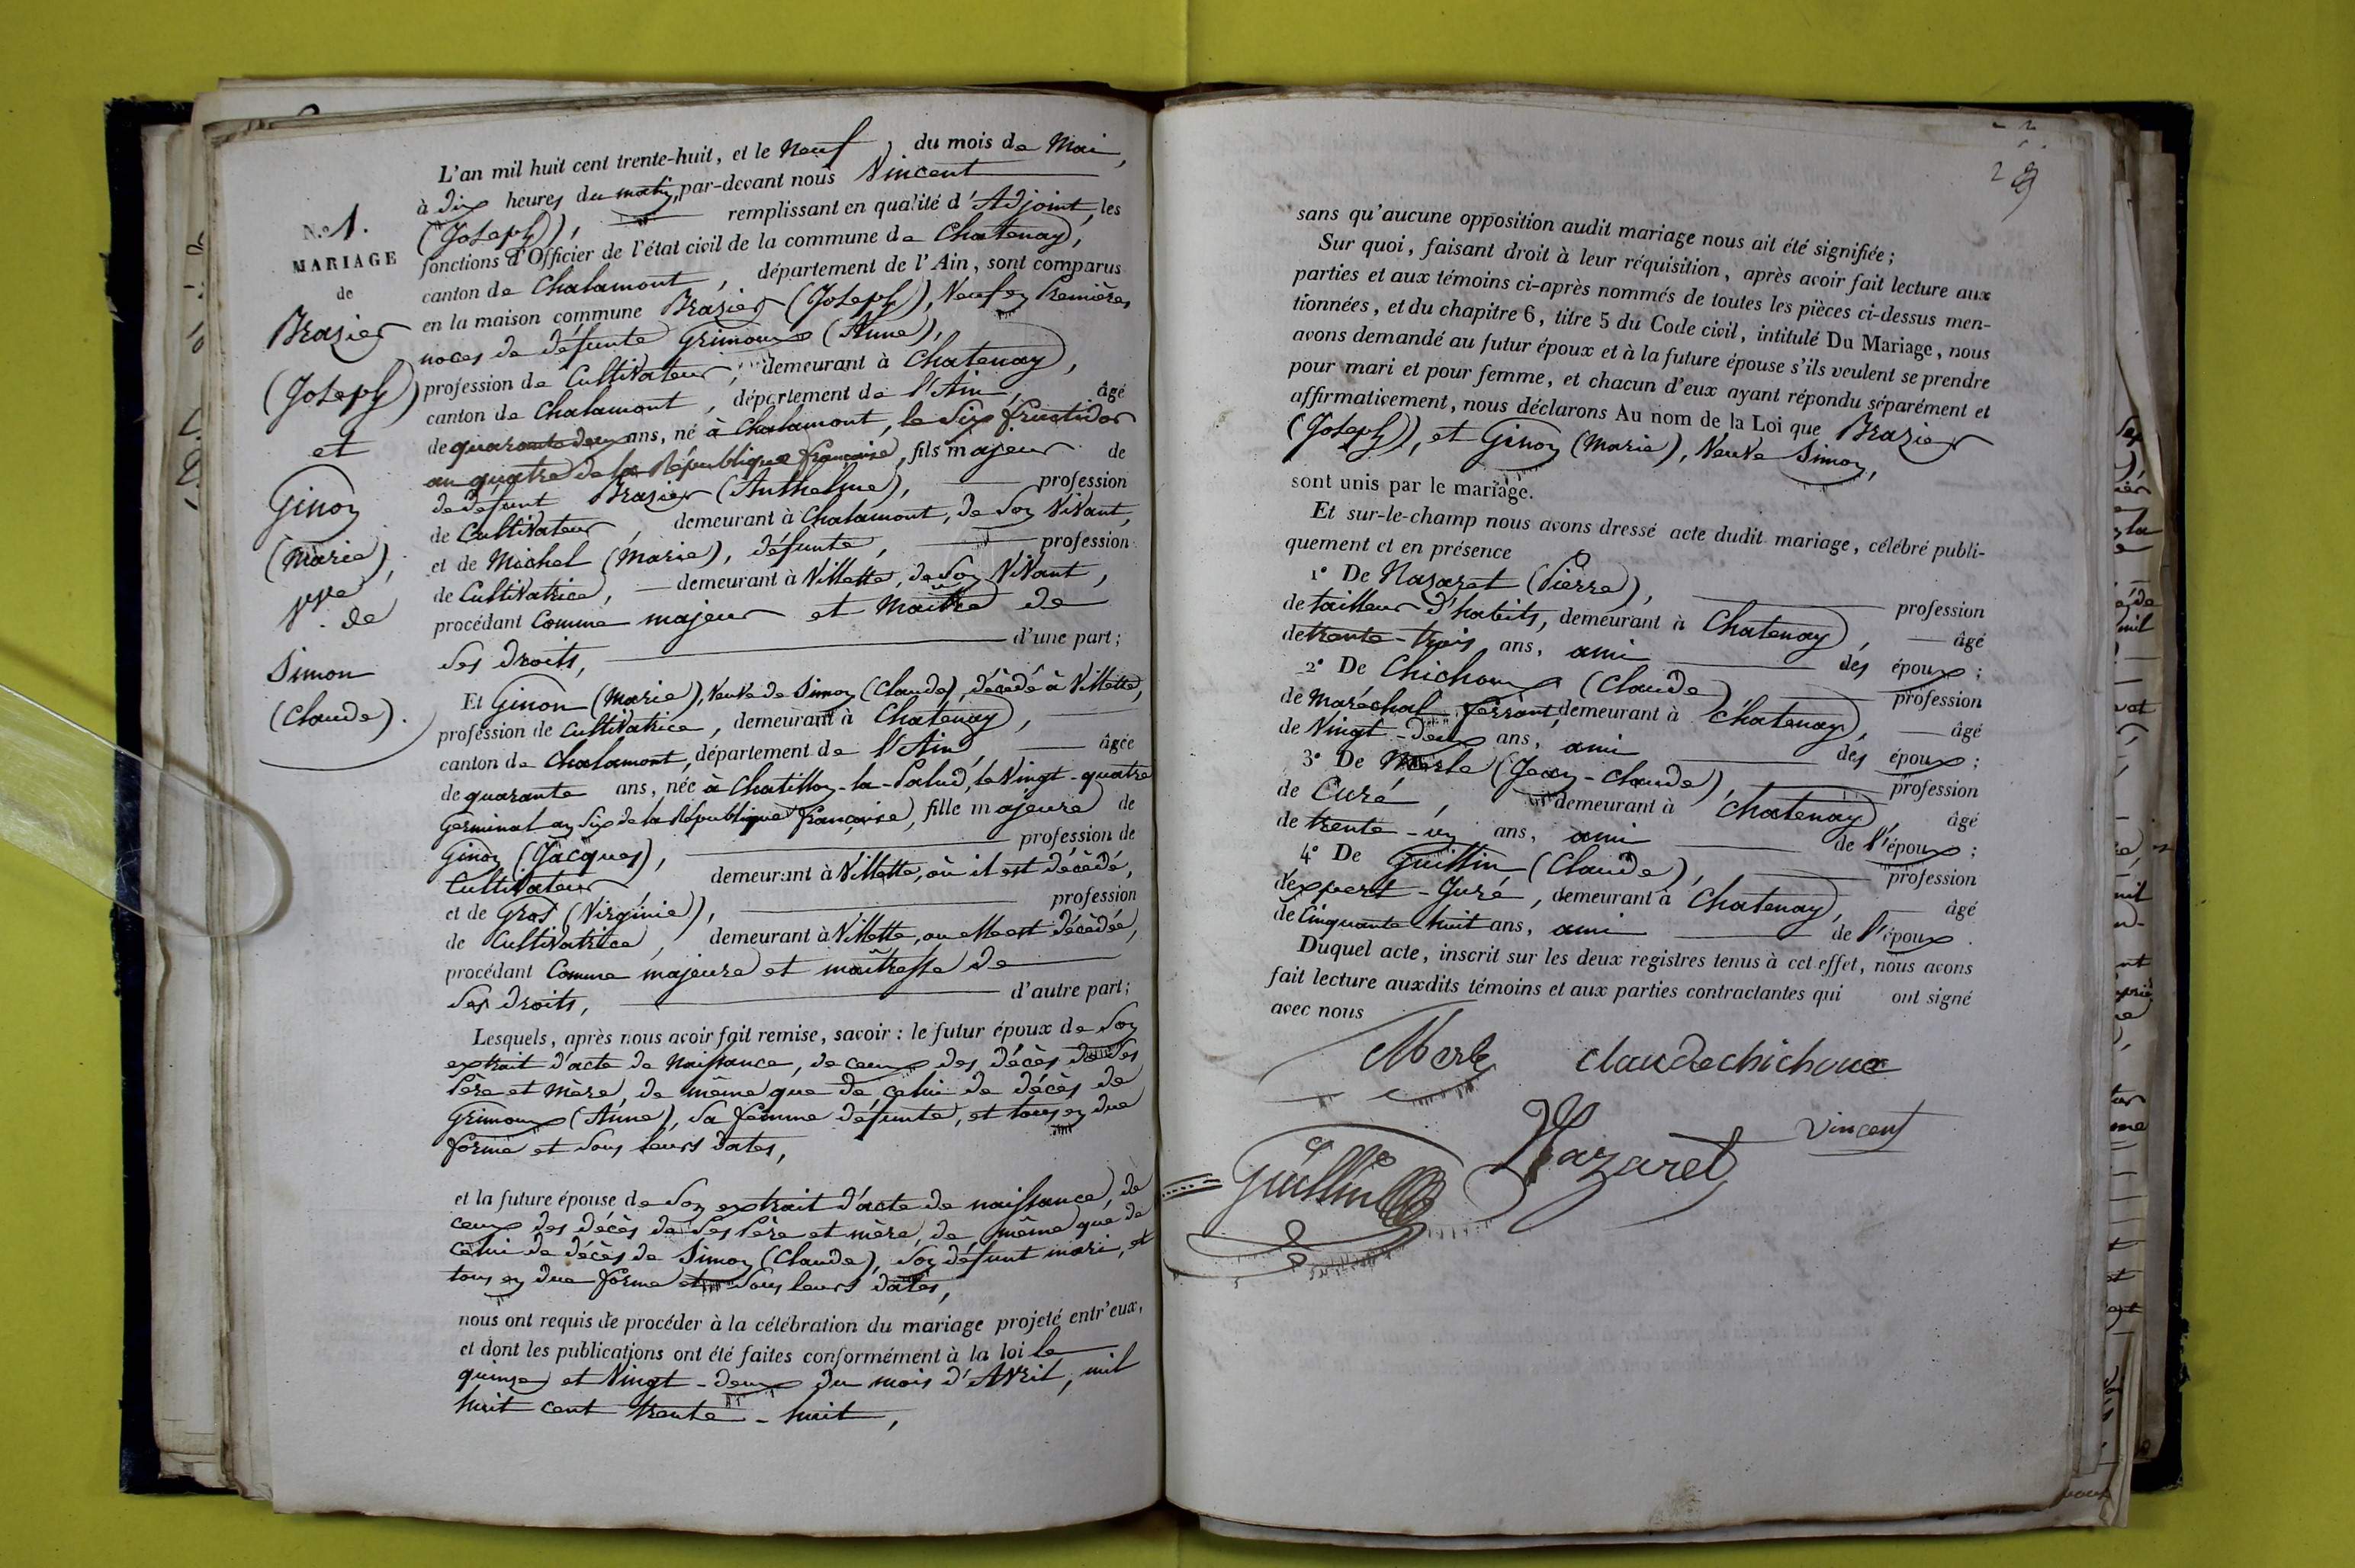 N.º 1.
MARIAGE
de
Brazier
(Joseph)
et
Ginon
(Marie),
Vve de
Simon
(Claude).
L'an mil huit cent trente-huit, et le neuf du mois de Mai,
à dix heures du matin, par-devant nous Vincent
(Joseph), remplissant en qualité d'Adjoint, les
fonctions d'Officier de l'état civil de la commune de Chatenay,
canton de Chalamont, département de l'Ain, sont comparus
en la maison commune Brazier (Joseph), Veuf en premières
noces de défunte Grimoux (Anne),
profession de Cultivateur, demeurant à Chatenay,
canton de Chalamont, département de l'Ain, âgé
de quarante deux ans, né à Chalamont, le six fructidor
an quatre de la République française, fils majeur de
de défunt Brazier (Anthelme), profession
de Cultivateur, demeurant à Chalamont, de son Vivant,
et de Michel (Marie), défunte, profession
de Cultivatrice, demeurant à Villette, de son Vivant,
procédant Comme majeur et Maitre de
ses droits, d'une part;
Et Ginon (Marie), Veuve de Simon (Claude), décédé à Villette,
profession de Cultivatrice, demeurant à Chatenay,
canton de Chalamont, département de l'Ain, âgée
de quarante ans, née à Chatillon-la-Palud, le Vingt-quatre
Germinal an six de la République française, fille majeure de
Ginon (Jacques), profession de
Cultivateur, demeurant à Villette, où il est décédé,
et de Gros (Virginie), profession
de Cultivatrice, demeurant à Villette, ou elle est décédée,
procédant Comme majeure et maîtresse de
ses droits, d'autre part;
Lesquels, après nous avoir fait remise, savoir: le futur époux de son
extrait d'acte de Naissance, de ceux des décès de ses
Père et Mère, de même que de celui de décès de
Grimoux (Anne), sa femme défunte, et tous en due
forme et sous leurs dates,
et la future épouse de son extrait d'acte de naissance, de
ceux des décès de ses Père et mère, de même que de
celui de décès de Simon (Claude), son défunt mari, et
tous en due forme et sous leurs dates,
nous ont requis de procéder à la célébration du mariage projeté entr'eux,
et dont les publications ont été faites conformément à la loi le
quinze et Vingt-deux du mois d'Avril, mil
huit cent trente-huit,
sans qu'aucune opposition audit mariage nous ait été signifiée;
Sur quoi, faisant droit à leur réquisition, après avoir fait lecture aux
parties et aux témoins ci-après nommés de toutes les pièces ci-dessus men-
tionnées, et du chapitre 6, titre 5 du Code civil, intitulé Du Mariage, nous
avons demandé au futur époux et à la future épouse s'ils veulent se prendre
pour mari et pour femme, et chacun d'eux ayant répondu séparément et
affirmativement, nous déclarons Au nom de la Loi que Brazier
(Joseph), et Ginon (Marie), Veuve Simon,
sont unis par le mariage.
Et sur-le-champ nous avons dressé acte dudit mariage, célébré publi-
quement et en présence
1° De Nazaret (Pierre), profession
de tailleur d'habits, demeurant à Chatenay, âgé
de trente-trois ans, ami des époux;
2° De Chichoux (Claude) profession
de Maréchal ferrant, demeurant à Chatenay, âgé
de Vingt-deux ans, ami des époux;
3° De Merle (Jean-Claude), profession
de Curé, demeurant à Chatenay, âgé
de trente-un ans, ami de l'époux;
4° De Guillin (Claude), profession
d'expert-Juré, demeurant à Chatenay, âgé
de Cinquante huit ans, ami de l'époux.
Duquel acte, inscrit sur les deux registres tenus à cet effet, nous avons
fait lecture auxdits témoins et aux parties contractantes qui ont signé
avec nous
Merle claude chichoux
Guillin Nazaret Vincent